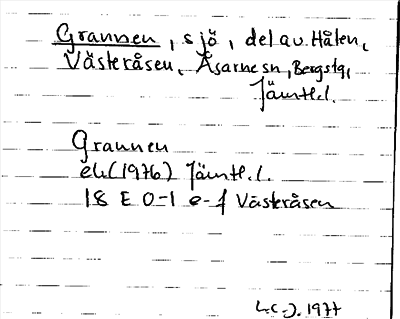 Grannen, sjö, del av. Hålen,
Västeråsen, Åsarne sn, Bergs tg,
Jämtl.l.
Grannen
ek(1976) Jämtl.l.
18 E 0-1 e-f Västeråsen
1977